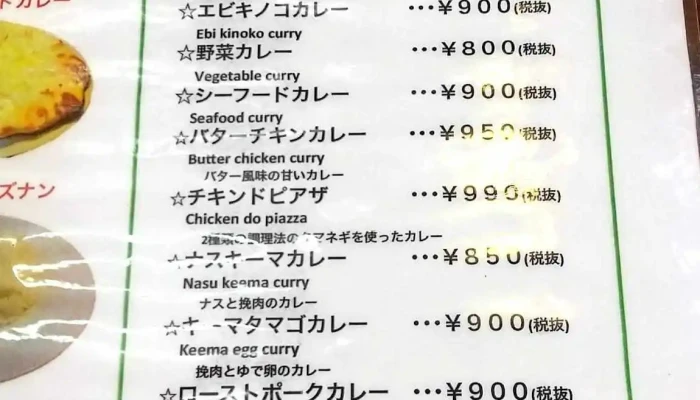 ドカレー
ズナン
☆エビキノコカレー ･･･￥９００(税抜)
Ebi kinoko curry
☆野菜カレー ･･･￥８００(税抜)
Vegetable curry
☆シーフードカレー ･･･￥９００(税抜)
Seafood curry
☆バターチキンカレー ･･･￥９５０(税抜)
Butter chicken curry
バター風味の甘いカレー
☆チキンドピアザ ･･･￥９９０(税抜)
Chicken do piazza
2種類の調理法のタマネギを使ったカレー
☆ナスキーマカレー ･･･￥８５０(税抜)
Nasu keema curry
ナスと挽肉のカレー
☆キーマタマゴカレー ･･･￥９００(税抜)
Keema egg curry
挽肉とゆで卵のカレー
☆ローストポークカレー ･･･￥９００(税抜)